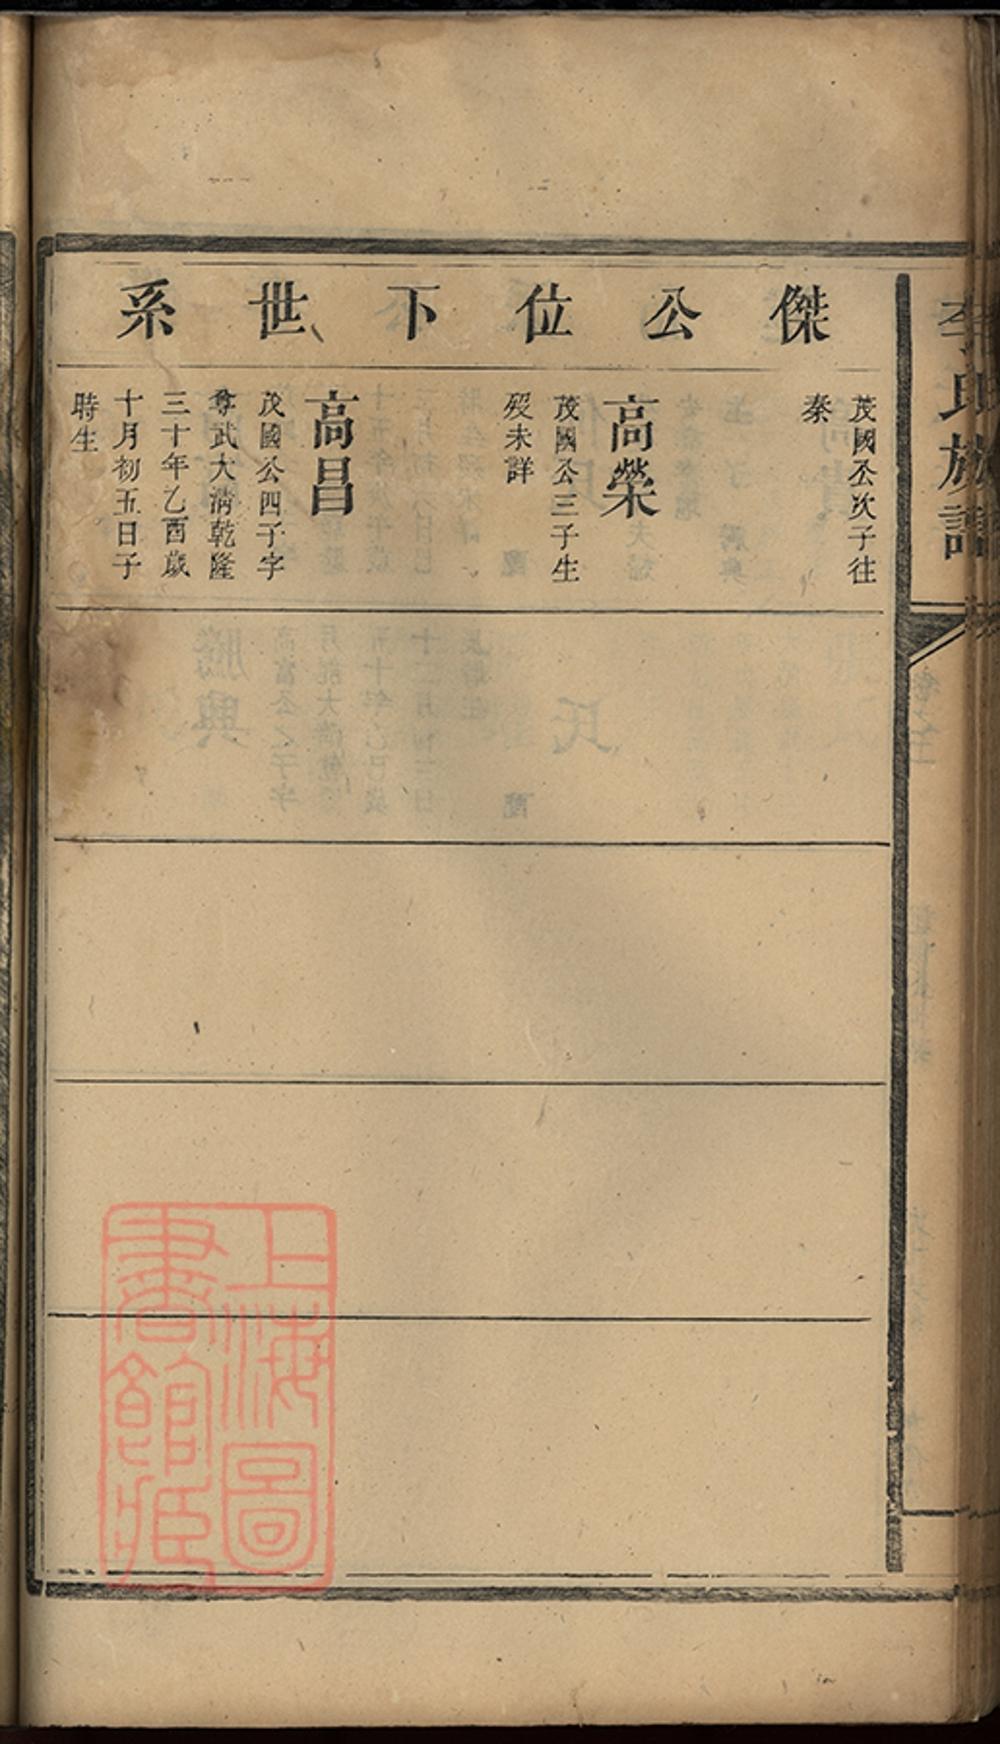 李氏族譜
傑公位下世系
茂國公次子往
秦
高榮
茂國公三子生
歿未詳
高昌
茂國公四子字
尊武大淸乾隆
三十年乙酉歲
十月初五日子
時生
上海圖
書館藏